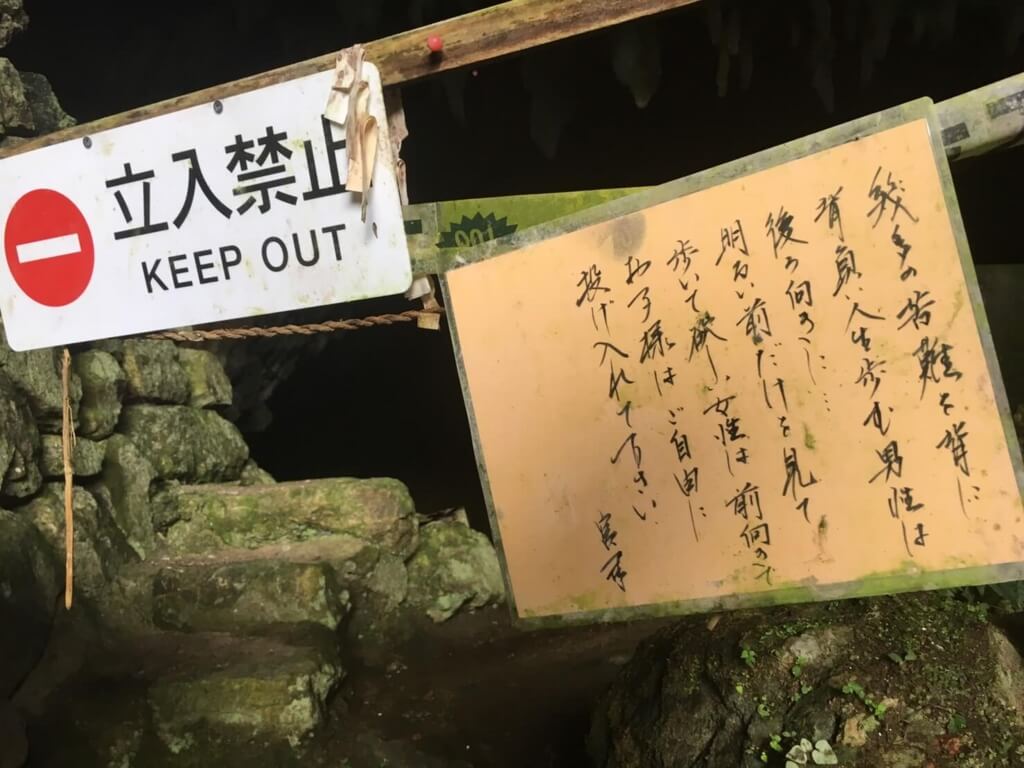 立入禁止
KEEP OUT
幾多の苦難を背に
背負い人生歩む男性は
後ろ向きに…
明るい前だけを見て
歩いて欲しい女性は前向きで
お子様はご自由に
投げ入れて下さい